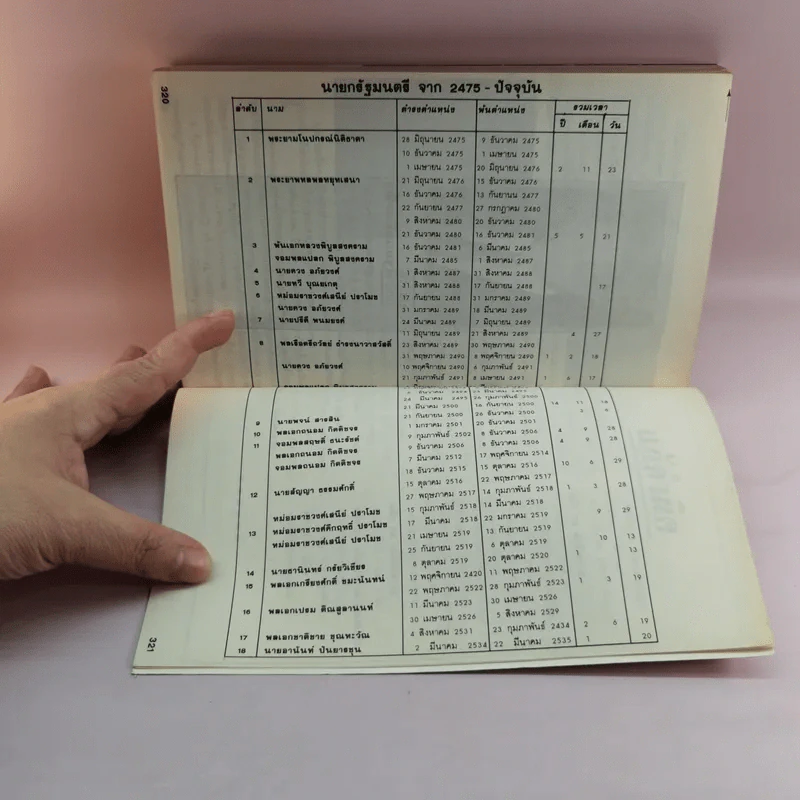 320
นายกรัฐมนตรี จาก 2475 - ปัจจุบัน
ลำดับ นาม ดำรงตำแหน่ง พ้นตำแหน่ง รวมเวลา
ปี เดือน วัน
1 พระยามโนปกรณ์นิติธาดา 28 มิถุนายน 2475 9 ธันวาคม 2475
10 ธันวาคม 2475 1 เมษายน 2475
1 เมษายน 2475 20 มิถุนายน 2476 2 11 23
2 พระยาพหลพลพยุหเสนา 21 มิถุนายน 2476 15 ธันวาคม 2476
16 ธันวาคม 2476 13 กันยายน 2477
22 กันยายน 2477 27 กรกฎาคม 2480
9 สิงหาคม 2480 20 ธันวาคม 2480
21 ธันวาคม 2480 16 ธันวาคม 2481 5 5 21
3 พันเอกหลวงพิบูลสงคราม 16 ธันวาคม 2481 6 มีนาคม 2485
จอมพลแปลก พิบูลสงคราม 7 มีนาคม 2485 1 สิงหาคม 2487
4 นายควง อภัยวงศ์ 1 สิงหาคม 2487 31 สิงหาคม 2488
5 นายทวี บุณยเกตุ 31 สิงหาคม 2488 17
6 หม่อมราชวงศ์เสนีย์ ปราโมช 17 กันยายน 2488 31 มกราคม 2489
นายควง อภัยวงศ์ 31 มกราคม 2489 18 มีนาคม 2489
7 นายปรีดี พนมยงค์ 24 มีนาคม 2489 7 มิถุนายน 2489
11 มิถุนายน 2489 21 สิงหาคม 2489 4 27
8 พลเรือตรีถวัลย์ ธำรงนาวาสวัสดิ์ 23 สิงหาคม 2489 30 พฤษภาคม 2490
31 พฤษภาคม 2490 8 พฤศจิกายน 2490 1 2 18
นายควง อภัยวงศ์ 10 พฤศจิกายน 2490 6 กุมภาพันธ์ 2491
21 กุมภาพันธ์ 2491 8 เมษายน 2491 1 6 17
24 มีนาคม 2495
21 มีนาคม 2500 16 กันยายน 2500 14 11 18
9 นายพจน์ สารสิน 21 กันยายน 2500 26 ธันวาคม 2500
10 พลเอกถนอม กิตติขจร 1 มกราคม 2501 20 ธันวาคม 2501
11 จอมพลสฤษดิ์ ธนะรัชต์ 9 กุมภาพันธ์ 2502 8 ธันวาคม 2506 4 9 28
พลเอกถนอม กิตติขจร 9 ธันวาคม 2506 8 ธันวาคม 2506 4 9 28
จอมพลถนอม กิตติขจร 7 มีนาคม 2512 17 พฤศจิกายน 2514
18 ธันวาคม 2515 15 ตุลาคม 2516 10 6 29
12 นายสัญญา ธรรมศักดิ์ 15 ตุลาคม 2516 22 พฤษภาคม 2517
27 พฤษภาคม 2517 14 กุมภาพันธ์ 2518 1 3 28
หม่อมราชวงศ์เสนีย์ ปราโมช 15 กุมภาพันธ์ 2518 14 มีนาคม 2518
13 หม่อมราชวงศ์คึกฤทธิ์ ปราโมช 17 มีนาคม 2518 22 มกราคม 2519 9 29
หม่อมราชวงศ์เสนีย์ ปราโมช 21 เมษายน 2519 13 กันยายน 2519
25 กันยายน 2519 6 ตุลาคม 2519 10 13
14 นายธานินทร์ กรัยวิเชียร 8 ตุลาคม 2519 20 ตุลาคม 2520 1 13
15 พลเอกเกรียงศักดิ์ ชมะนันทน์ 12 พฤศจิกายน 2420 11 พฤษภาคม 2522
22 พฤษภาคม 2522 28 กุมภาพันธ์ 2523 1 3 19
16 พลเอกเปรม ติณสูลานนท์ 11 มีนาคม 2523 30 เมษายน 2526
30 เมษายน 2526 5 สิงหาคม 2529
17 พลเอกชาติชาย ชุณหะวัณ 4 สิงหาคม 2531 23 กุมภาพันธ์ 2434 2 6 19
18 นายอานันท์ ปันยารชุน 2 มีนาคม 2534 22 มีนาคม 2535 1 20
321